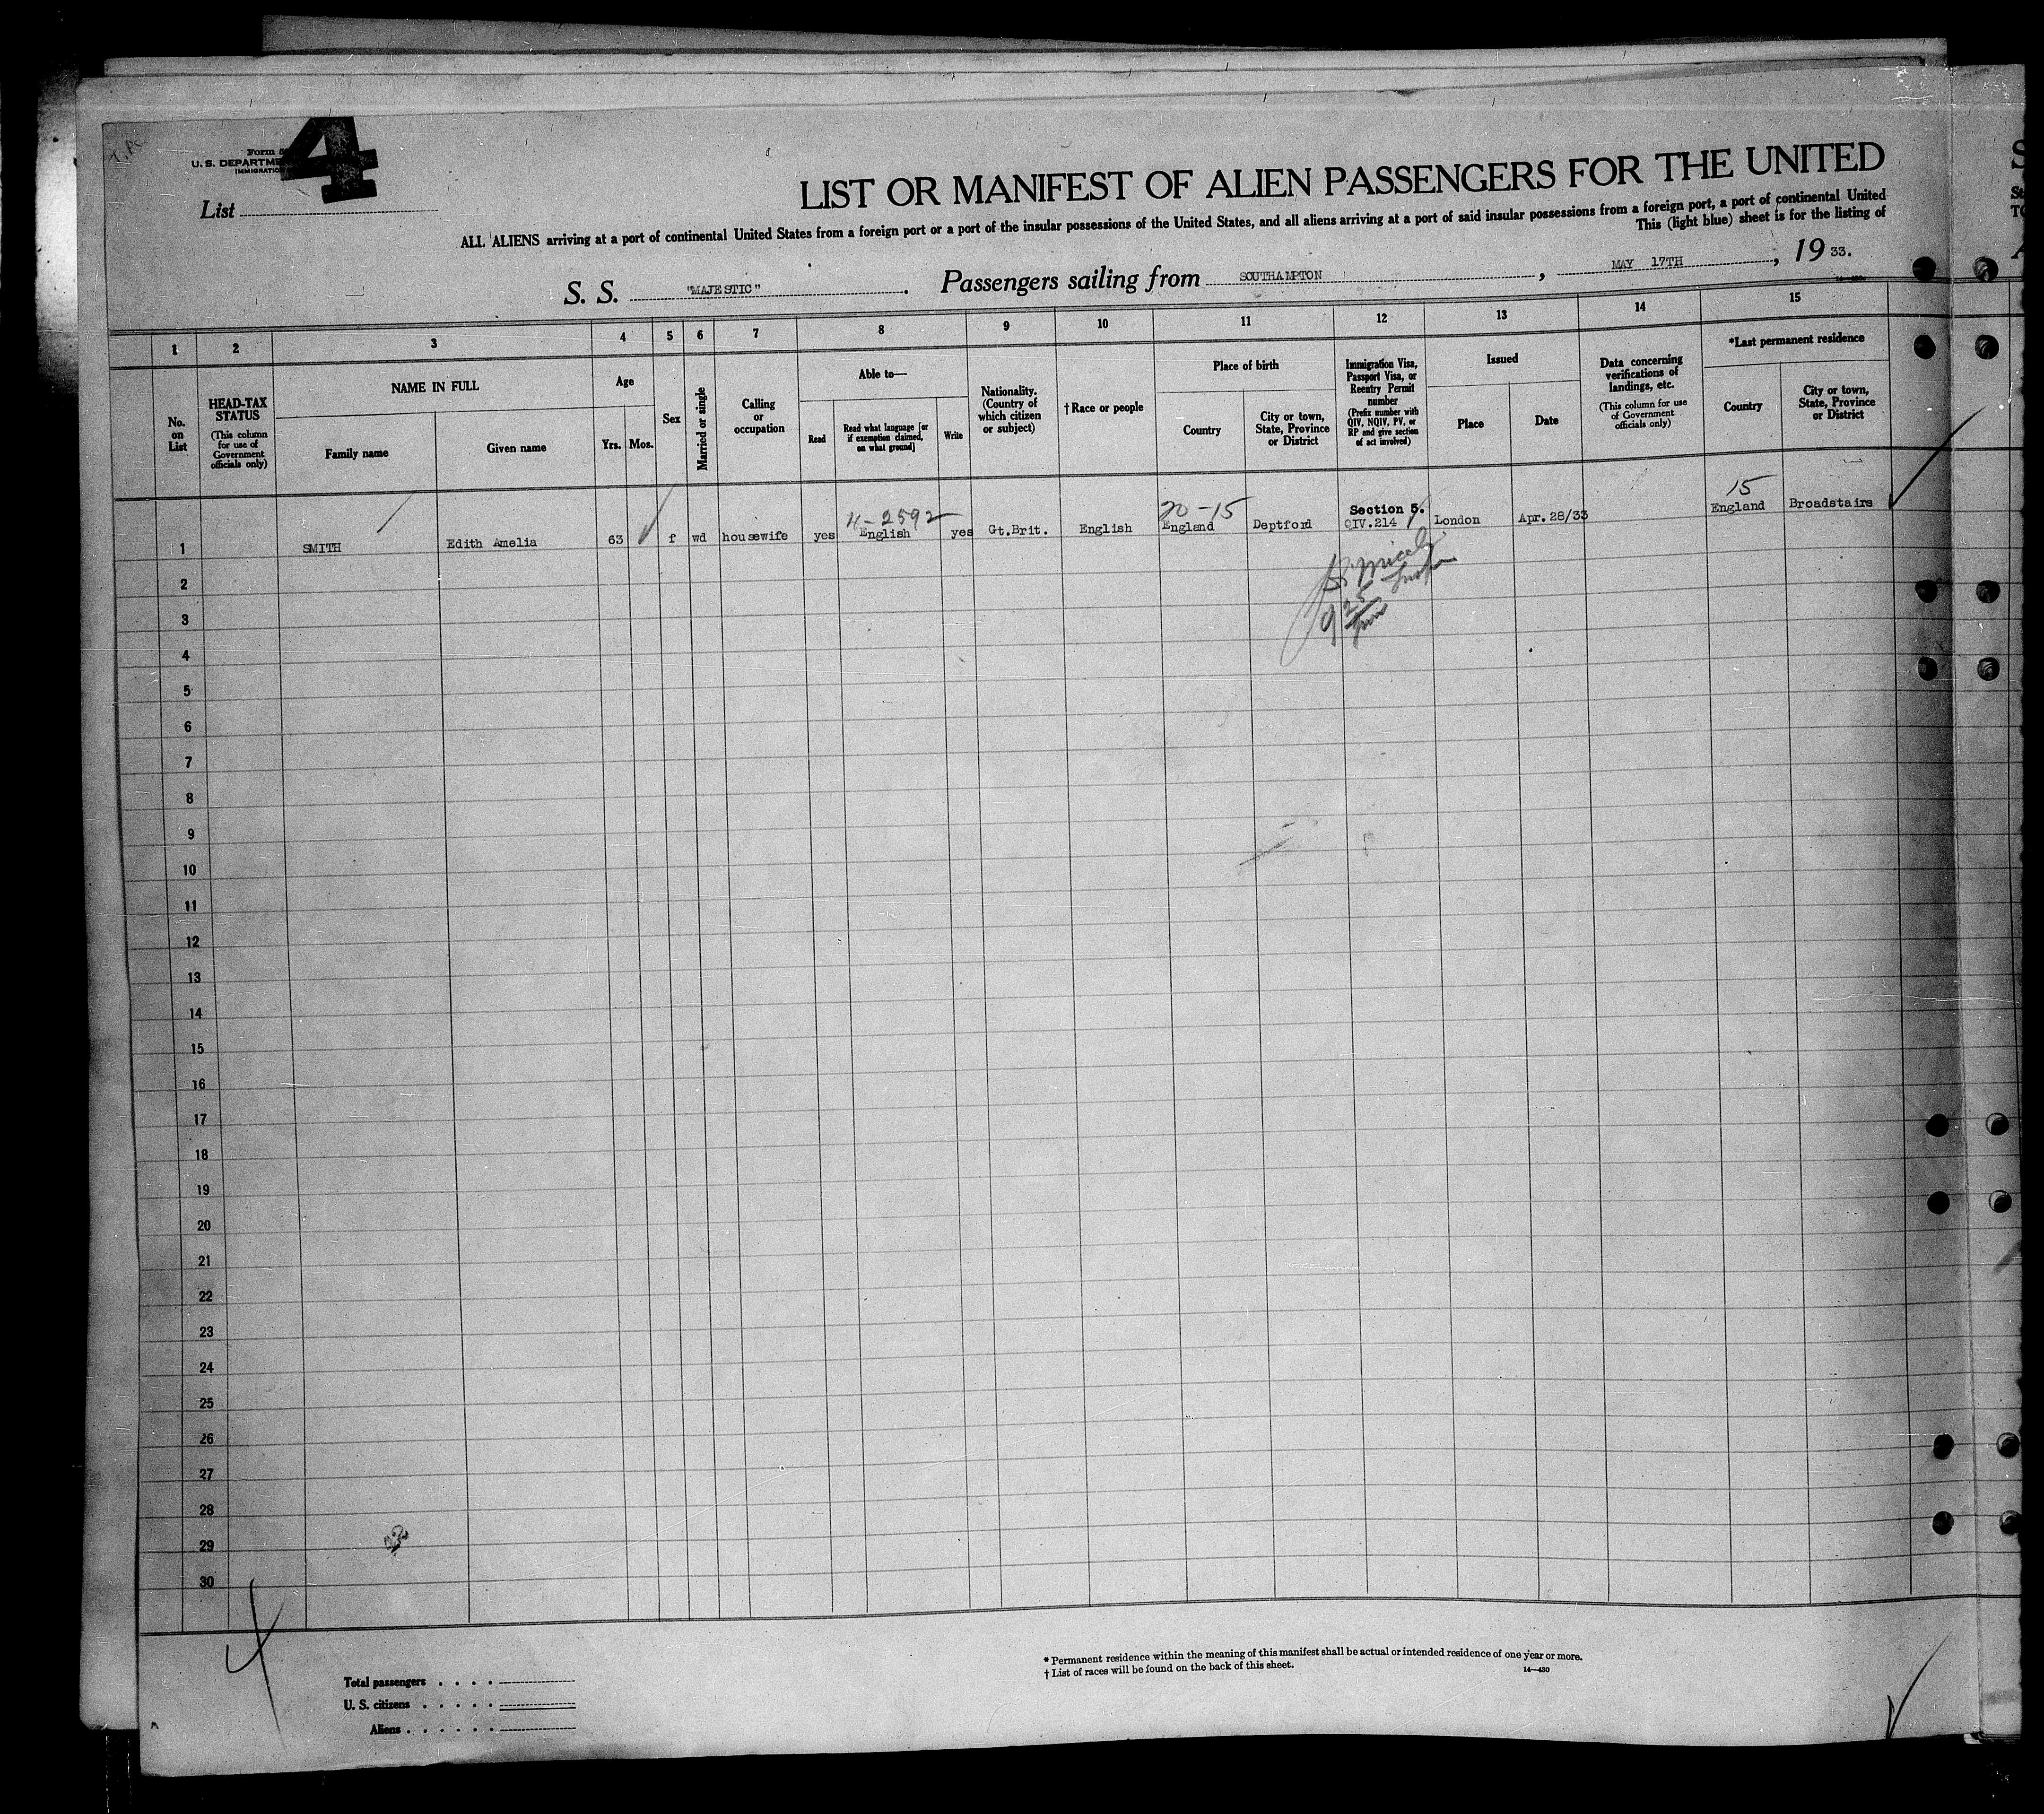 4
Form 5
U. S. DEPARTME
IMMIGRATION
List
LIST OR MANIFEST OF ALIEN PASSENGERS FOR THE UNITED
ALL ALIENS arriving at a port of continental United States from a foreign port or a port of the insular possessions of the United States, and all aliens arriving at a port of said insular possessions from a foreign port, a port of continental United
This (light blue) sheet is for the listing of
S. S. "MAJESTIC". Passengers sailing from SOUTHAMPTON, MAY 17TH, 1933.
1 2 3 4 5 6 7 8 9 10 11 12 13 14 15
No. on List
HEAD-TAX STATUS
(This column for use of Government officials only)
NAME IN FULL
Family name
Given name
Age
Yrs. Mos.
Sex
Married or single
Calling or occupation
Able to—
Read
Read what language [or if exemption claimed, on what ground]
Write
Nationality. (Country of which citizen or subject)
† Race or people
Place of birth
Country
City or town, State, Province or District
Immigration Visa, Passport Visa, or Reentry Permit number
(Prefix number with QIV, NQIV, PV, or RP and give section of act involved)
Issued
Place
Date
Data concerning verifications of landings, etc.
(This column for use of Government officials only)
*Last permanent residence
Country
City or town, State, Province or District
4-2592
20-15
Section 5.
15
1 SMITH Edith Amelia 63 f wd housewife yes English yes Gt.Brit. English England Deptford QIV.214 London Apr.28/33 England Broadstairs
2
3
4
5
6
7
8
9
10
11
12
13
14
15
16
17
18
19
20
21
22
23
24
25
26
27
28
29
30
4
* Permanent residence within the meaning of this manifest shall be actual or intended residence of one year or more.
† List of races will be found on the back of this sheet.
14—430
Total passengers
U. S. citizens
Aliens